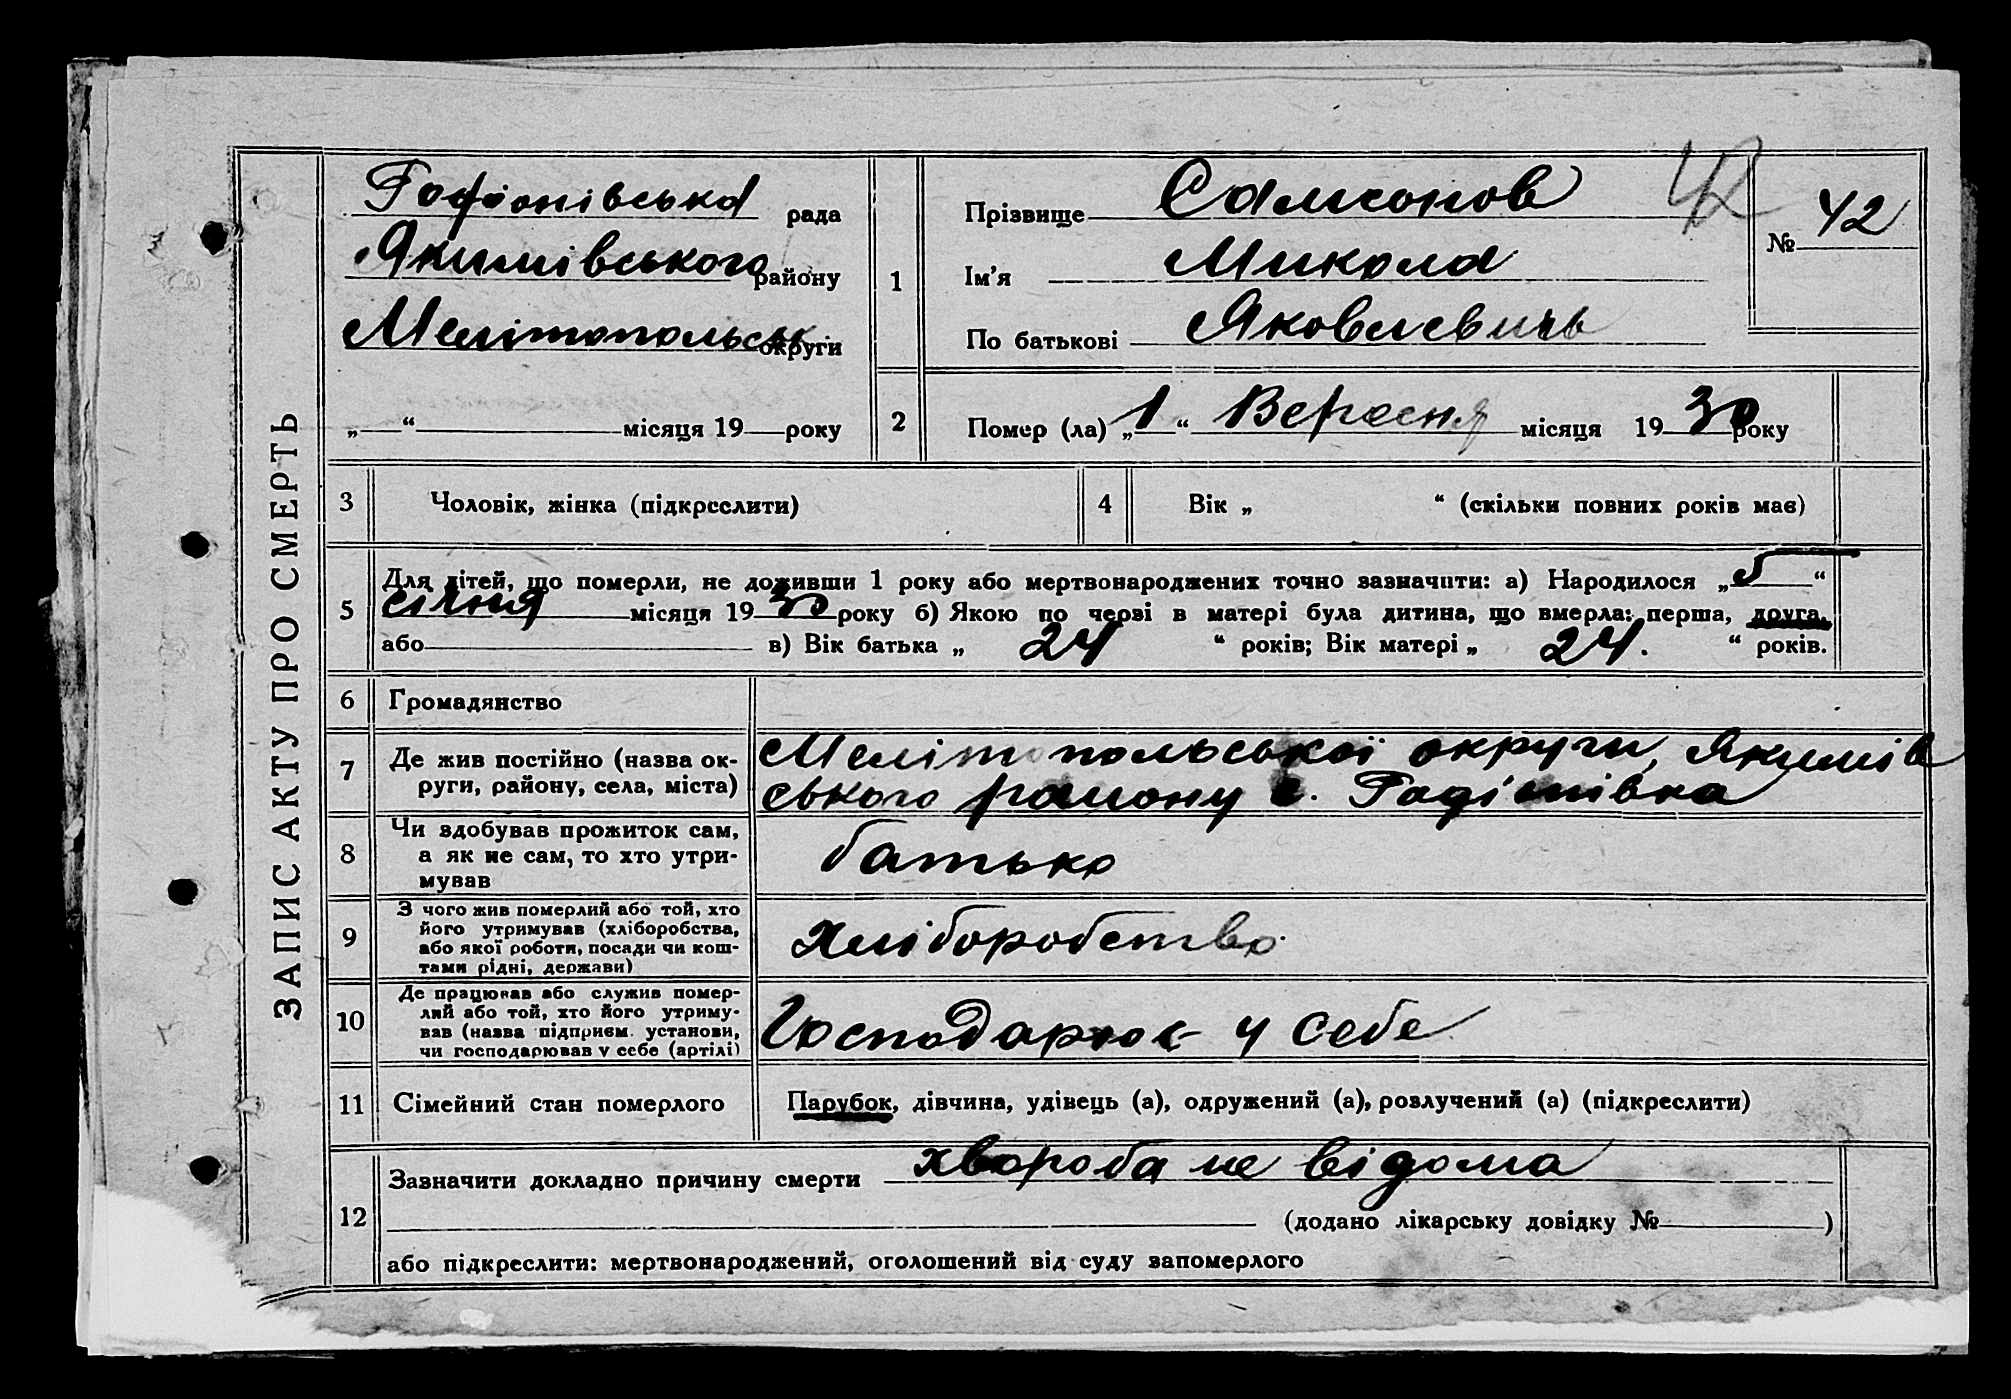 ЗАПИС АКТУ ПРО СМЕРТЬ
рада
Якимівського району
Мелітопольськ округи
„ “ місяця 19 року
1
Прізвище Самсонов
Ім’я Микола
По батькові Яковлевичь
42
№ 42
2
Помер (ла) „1“ Вересня місяця 1930 року
3
Чоловік, жінка (підкреслити)
4
Вік „ “ (скільки повних років має)
5
Для дітей, що померли, не доживши 1 року або мертвонароджених точно зазначити: а) Народилося „5“
січня місяця 1930 року б) Якою по черзі в матері була дитина, що вмерла: перша, друга,
або в) Вік батька „ 24 “ років; Вік матері „ 24. “ років.
6
Громадянство
7
Де жив постійно (назва ок-
руги, району, села, міста)
Мелітопольської округи, Якимів
ського району с.
8
Чи здобував прожиток сам,
а як не сам, то хто утри-
мував
батько
9
З чого жив померлий або той, хто
його утримував (хліборобства,
або якої роботи, посади чи кош-
тами рідні, держави)
хліборобство
10
Де працював або служив помер-
лий або той, хто його утриму-
вав (назва підприєм. установи,
чи господарював у себе (артілі)
Господарює у себе
11
Сімейний стан померлого
Парубок, дівчина, удівець (а), одружений (а), розлучений (а) (підкреслити)
12
Зазначити докладно причину смерти хвороба не відома
(додано лікарську довідку № )
або підкреслити: мертвонароджений, оголошений від суду запомерлого